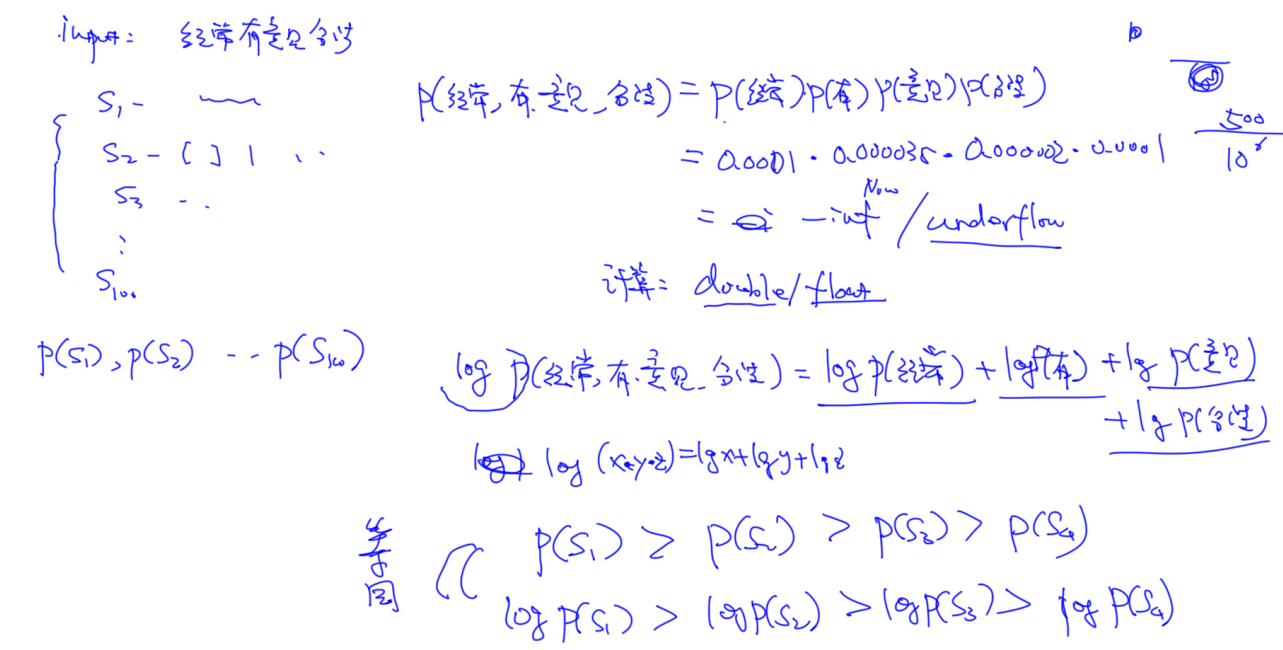 input: 经常有意见分歧
S1 -
S2 - [ ] | ...
S3 - ..
⋮
S100
p(S1), p(S2) -- p(S100)
p(经常, 有, 意见, 分歧) = p(经常) p(有) p(意见) p(分歧)
= 0.0001 · 0.000035 · 0.000002 · 0.0001
= -inf / underflow
计算: double/float
500
log p(经常, 有, 意见, 分歧) = log p(经常) + log p(有) + log p(意见)
+ log p(分歧)
log (x·y·z) = log x + log y + log z
等同
p(S1) > p(S2) > p(S3) > p(S4)
log p(S1) > log p(S2) > log p(S3) > log p(S4)